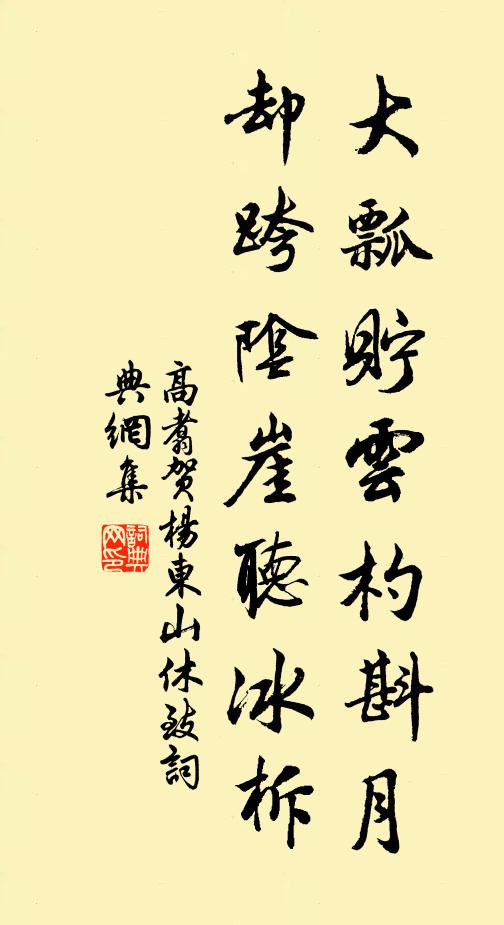 大瓢貯雲杓斟月
却跨陰崖聽冰柝
高翥賀楊東山休致詞
典網集
詞典
网印